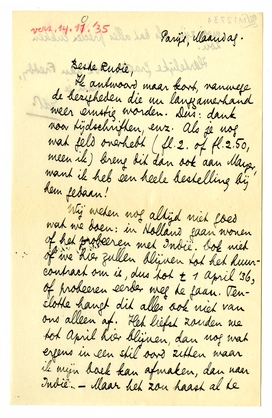 verz. 14.9.'35
Parijs, Maandag.
Beste Rudie,
Ik antwoord maar kort, vanwege
de bezigheden die nu langzamerhand
weer ernstig worden. Dus: dank
voor tijdschriften, enz. Als je nog
wat geld overhebt (fl. 2. of fl. 2.50,
meen ik) breng dit dan ook aan Mayer,
want ik heb een heele bestelling bij
hem gedaan!
Wij weten nog altijd niet goed
wat we doen: in Holland gaan wonen
of het probeeren met Indië. Ook niet
of we hier zullen blijven tot het huur-
contract om is, dus tot ± 1 April 36,
of probeeren eerder weg te gaan. Ten-
slotte hangt dit alles ook niet van
ons alleen af. Het liefst zouden we
tot April hier blijven, dan nog wat
ergens in een stil oord zitten waar
ik mijn boek kan afmaken, dan naar
Indië. — Maar het zou haast al te